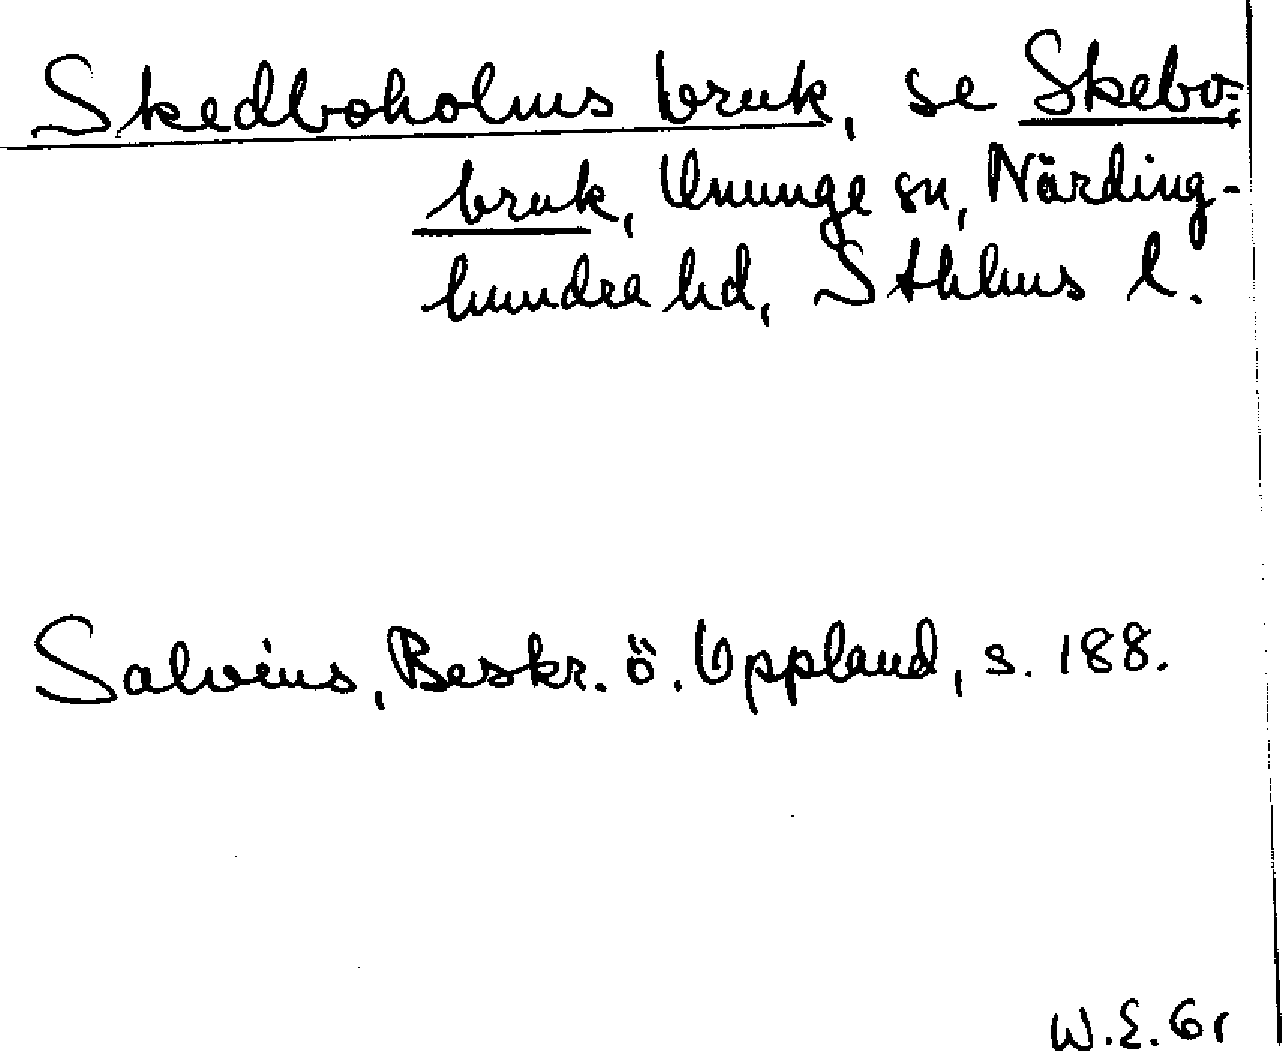 Skedboholms bruk, se Skebo=
bruk, Ununge sn, Närding-
hundra hd, Sthlms l.
Salvius, Beskr. ö. Uppland, s. 188.
W.E. Gr